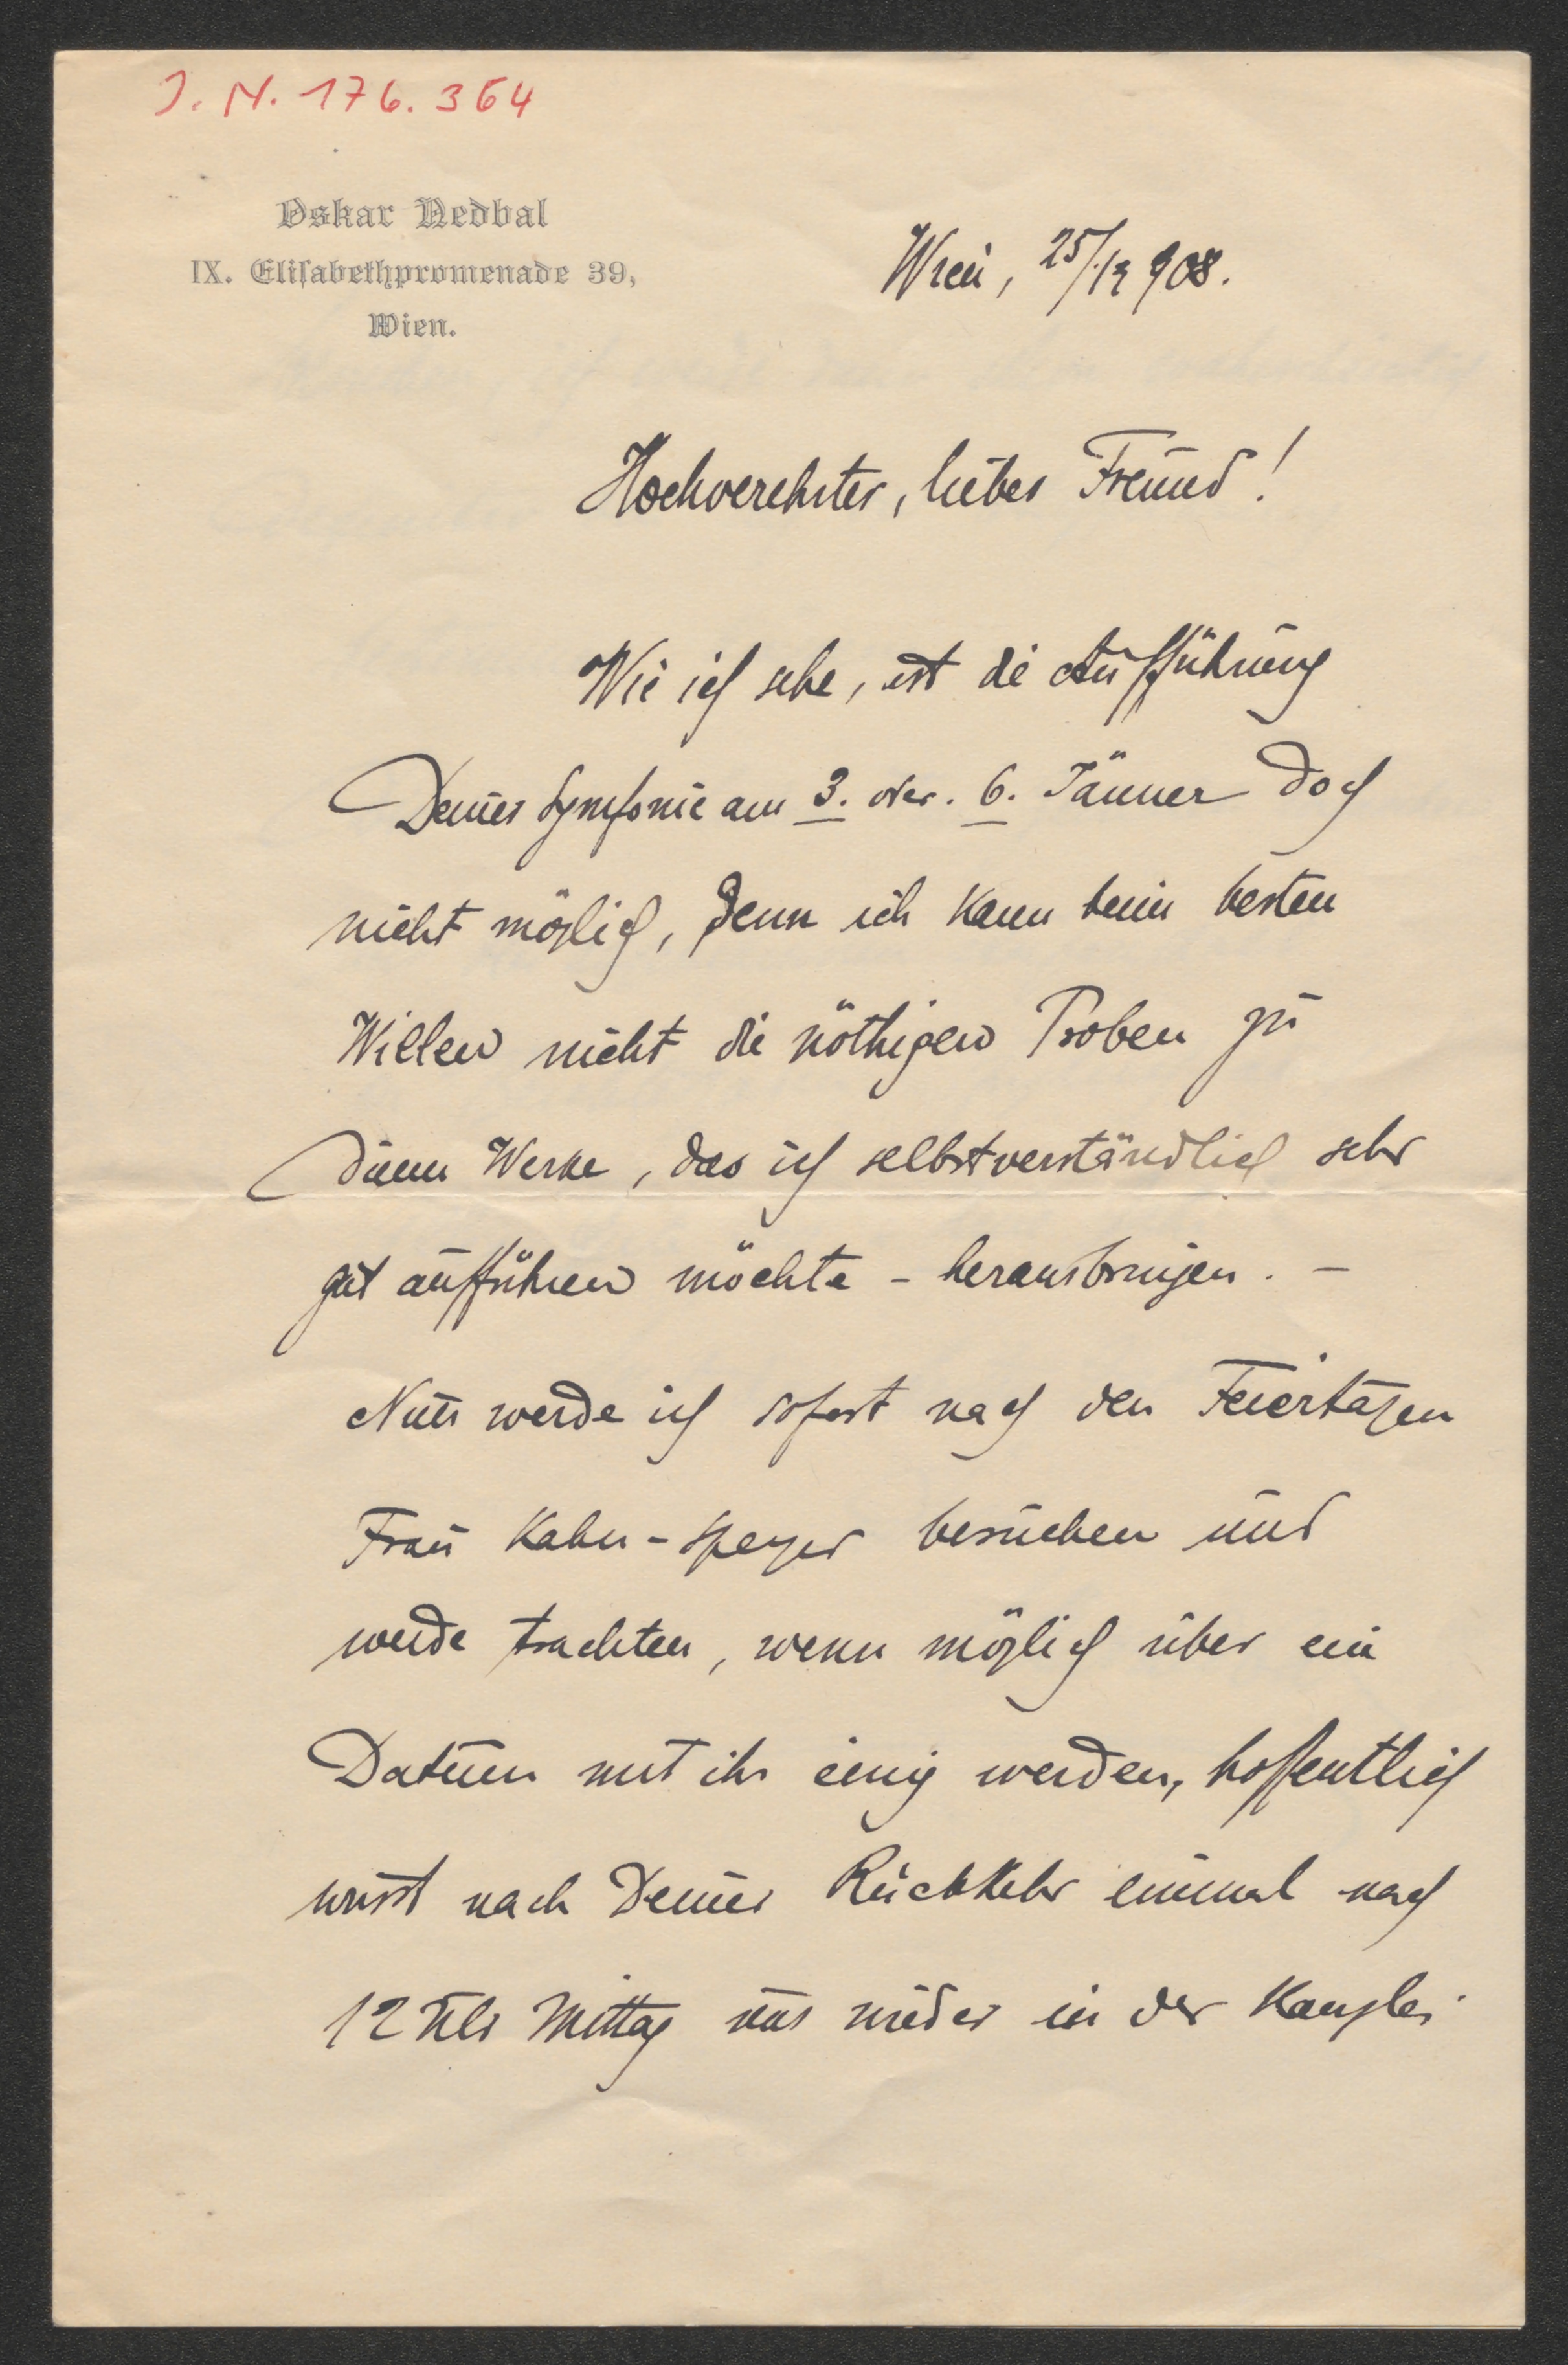 J. N. 176.364
Oskar Nedbal
IX. Eliſabethpromenade 39,
Wien.
Wien, 25/12 908.
Hochverehrter, lieber Freund!
Wie ich sehe, ist die Aufführung
Deiner Symfonie am 3. oder. 6. Jänner doch
nicht möglich, denn ich kann beim besten
Willen nicht die nöthigen Proben zu
Diesem Werke, das ich selbstverständlich sehr
gut aufführen möchte - herausbringen. -
Nun werde ich sofort nach den Feiertagen
Frau Kahn-Speyer besuchen und
werde trachten, wenn möglich über ein
Datum mit ihr einig werden, hoffentlich
wirst nach Deiner Rückkehr einmal nach
12 Uhr Mittag uns wieder in der Kanzlei